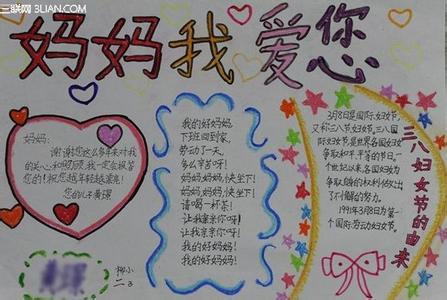 三联网 3LIAN.COM
妈妈我爱您
妈妈:
谢谢您这么多年来对我
的关心和照顾,我一定会报答
您的!祝您越年轻越漂亮!
您的儿子黄璟
我的好妈妈,
下班回到家,
劳动了一天,
多么辛苦呀!
妈妈,妈妈,快坐下!
妈妈,妈妈,快坐下!
请喝一杯茶!
让我亲亲你呀!
让我亲亲你呀!
我的好妈妈!
我的好妈妈!
三八妇女节的由来
3月8日是国际妇女节,
又称三八节妇女节,三八国
际妇女节是世界各国妇女
争取和平,平等的节日。一
个世纪以来,各国妇女为
争取她的权利做出
了不懈的努力。
1991年3月8日为第
个国际劳动妇女节。
柳小
二3